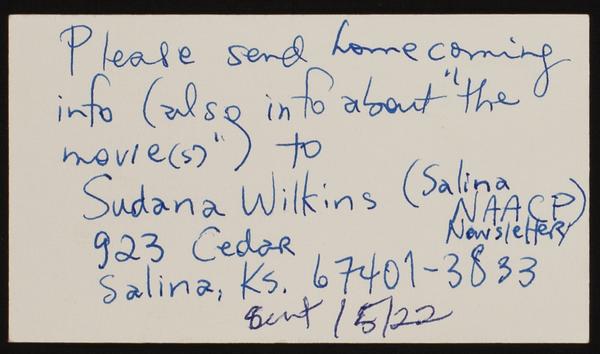 Please send homecoming
info (also info about "the
movie(s)") to
Sudana Wilkins (Salina
NAACP)
Newsletter
923 Cedar
Salina, Ks. 67401-3833
Sent 1/5/22